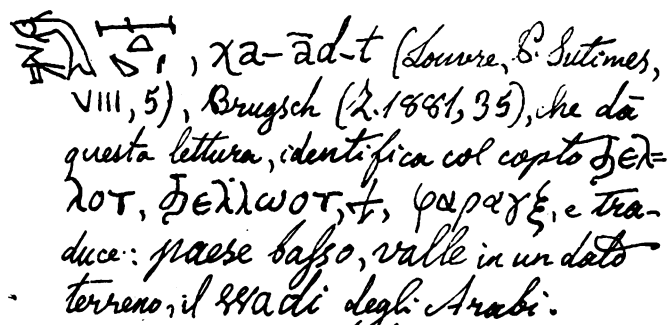 , χa-ād-t (Louvre, P. Sutimes,
VIII, 5), Brugsch (Z. 1881, 35), che dà
questa lettura, identifica col copto ϧⲉⲗ=
ⲗⲟⲧ, ϧⲉⲗⲗⲱⲧ, ϯ, φαραγξ, e tra-
duce: paese basso, valle in un dato
terreno, il wadi degli Arabi.